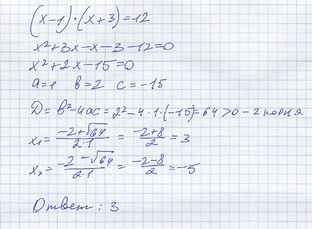 (x-1)·(x+3)=12
x²+3x-x-3-12=0
x²+2x-15=0
a=1 b=2 c=-15
D=b²-4ac=2²-4·1·(-15)=64>0-2 корня
x₁=(-2+√64)/(2·1)=(-2+8)/2=3
x₂=(-2-√64)/(2·1)=(-2-8)/2=-5
Ответ: 3